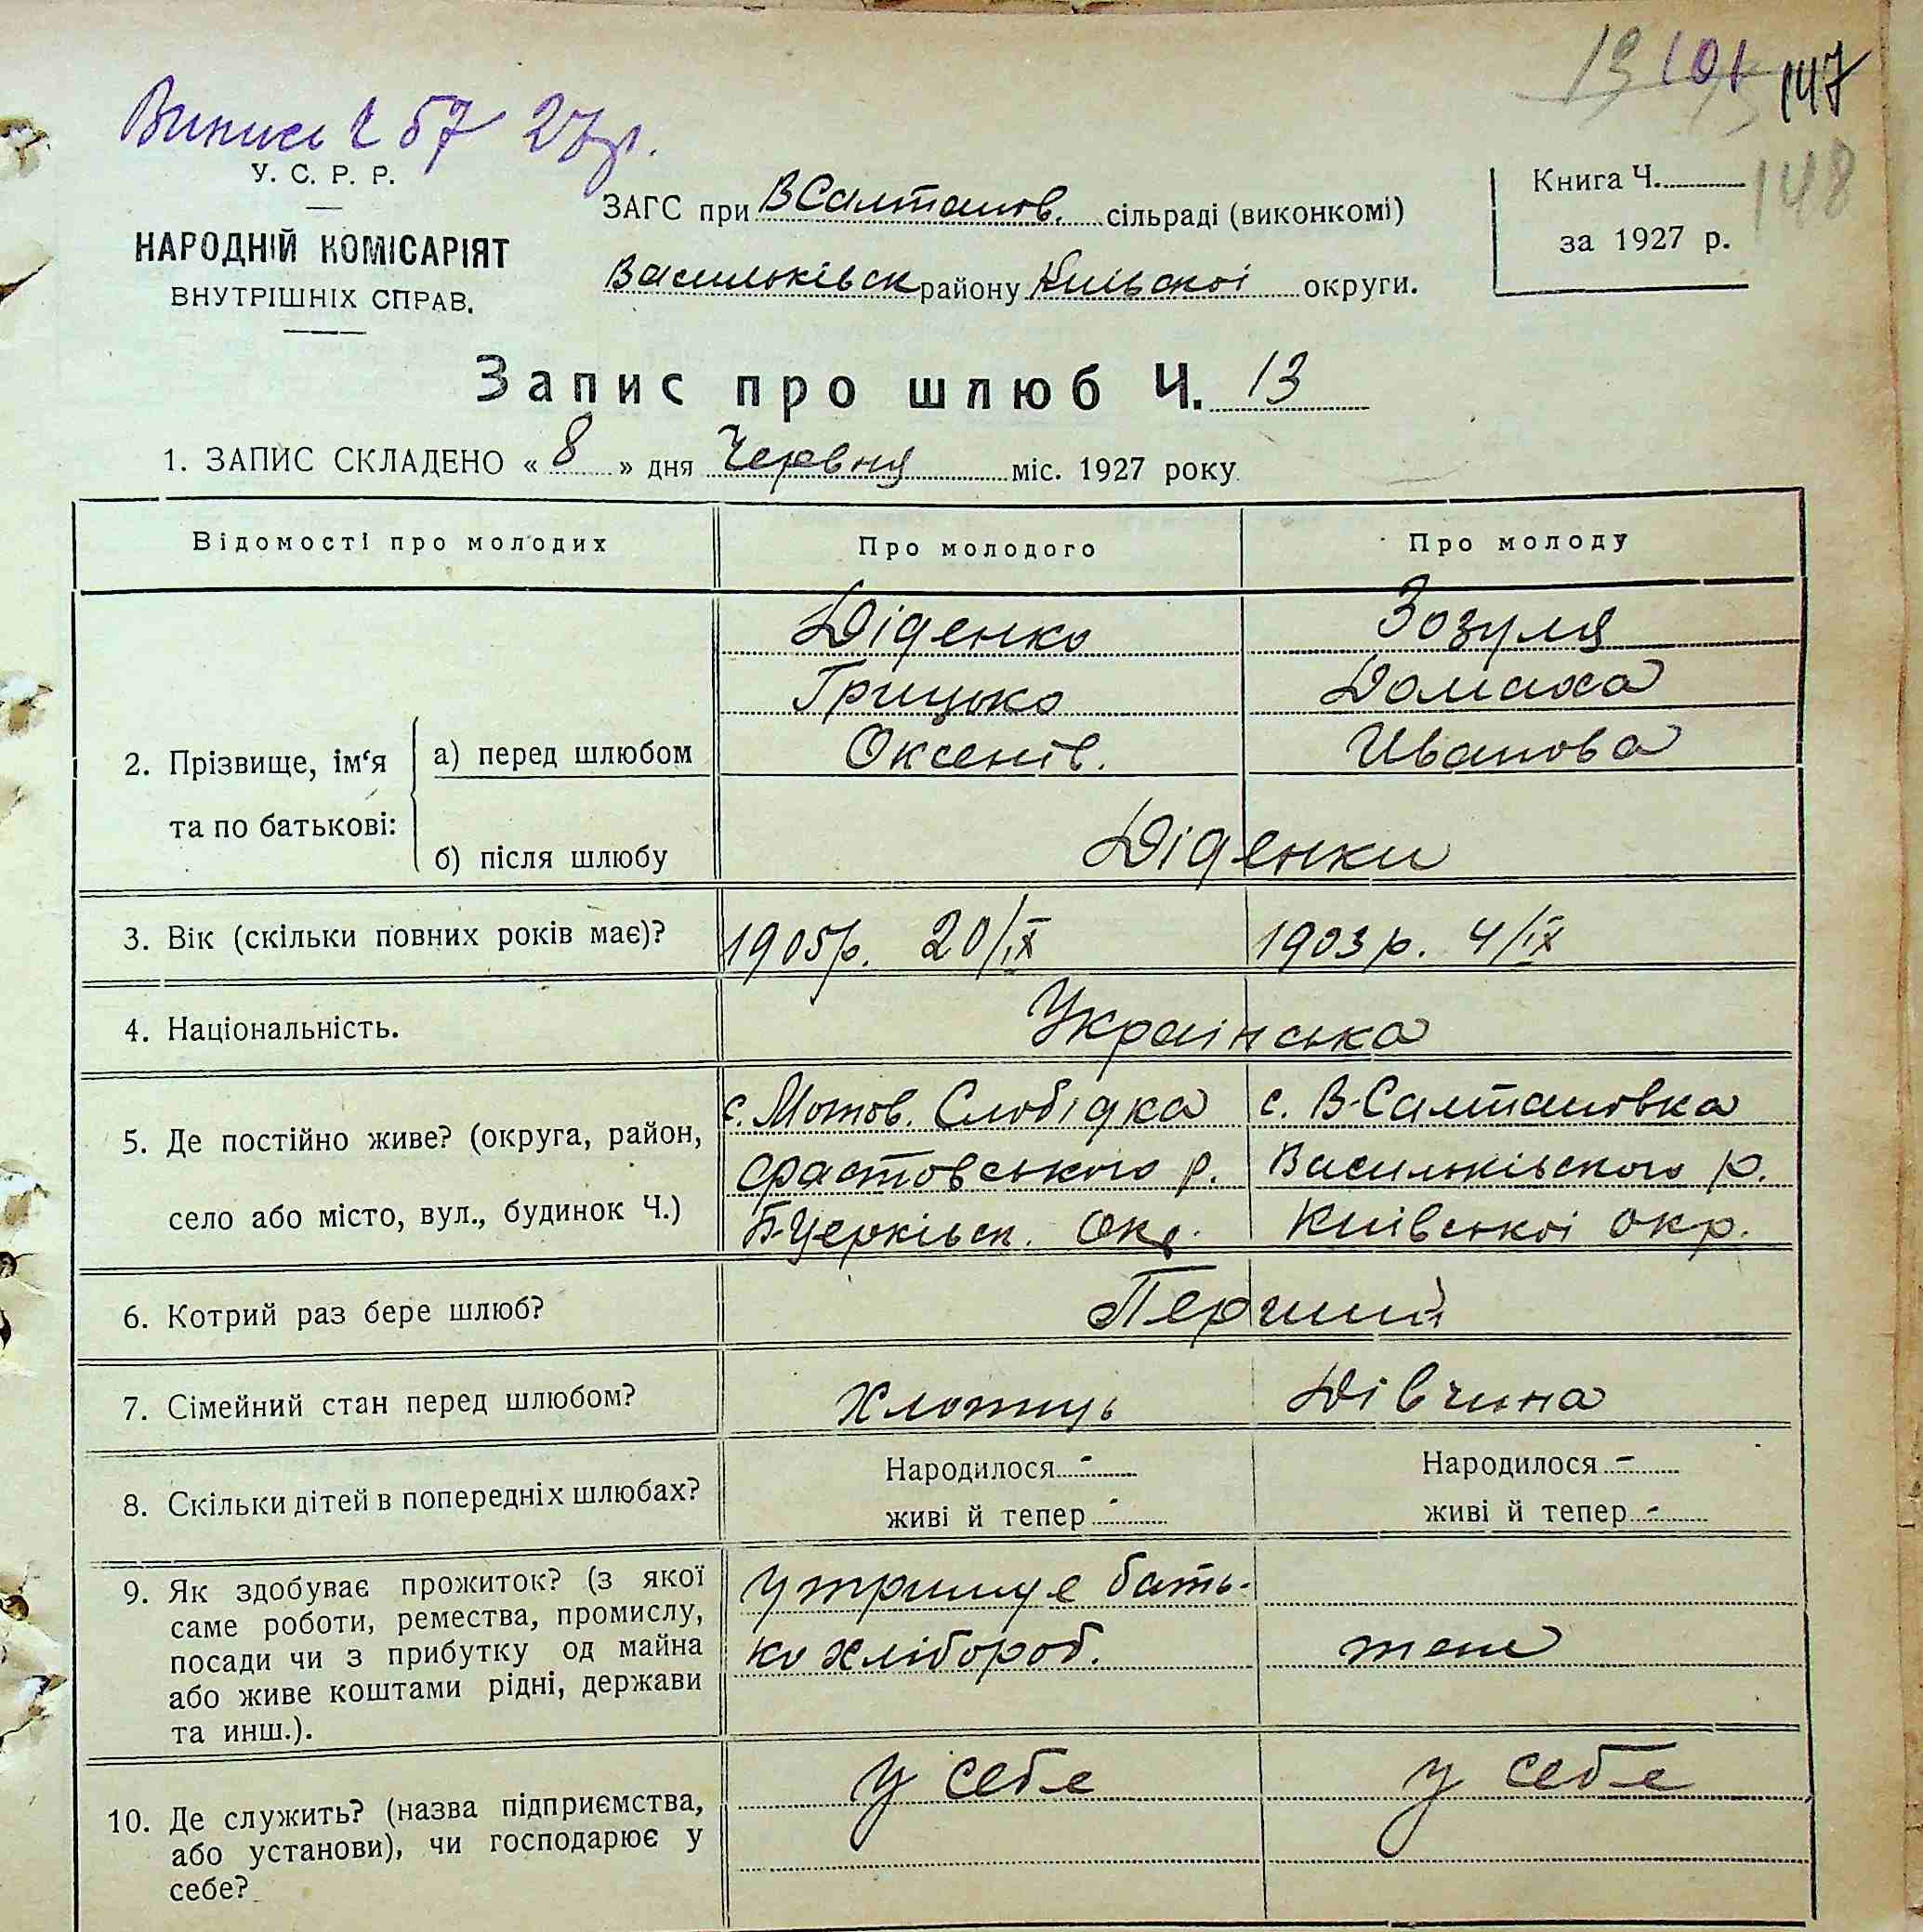 13 101 147
148
Випись Ч 57 27р.
У. С. Р. Р.
НАРОДНІЙ КОМІСАРІЯТ
ВНУТРІШНІХ СПРАВ.
ЗАГС при ВСалтанов. сільраді (виконкомі)
Васильківськ району Київської округи.
Книга Ч.
за 1927 р.
Запис про шлюб Ч. 13
1. ЗАПИС СКЛАДЕНО « 8 » дня Червня міс. 1927 року.
Відомості про молодих
Про молодого
Про молоду
2. Прізвище, ім‘я та по батькові:
а) перед шлюбом
Діденко
Грицько
Оксенів.
Зозуля
Домаха
Иванова
б) після шлюбу
Діденки
3. Вік (скільки повних років має)?
1905р. 20/IX
1903р. 4/IX
4. Національність.
Українська
5. Де постійно живе? (округа, район,
село або місто, вул., будинок Ч.)
с. Мотов. Слобідка
Фастовського р.
Б-Церківськ. Окр.
с. В-Салтановка
Васильківського р.
Київської окр.
6. Котрий раз бере шлюб?
Перший
7. Сімейний стан перед шлюбом?
Хлопець
Дівчина
8. Скільки дітей в попередніх шлюбах?
Народилося -
живі й тепер -
Народилося -
живі й тепер -
9. Як здобуває прожиток? (з якої
саме роботи, ремества, промислу,
посади чи з прибутку од майна
або живе коштами рідні, держави
та инш.).
утримує бать-
ко хлібороб.
теж
10. Де служить? (назва підприємства,
або установи), чи господарює у
себе?
у себе
у себе